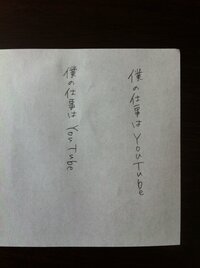 僕の仕事はYouTube
僕の仕事はYouTube